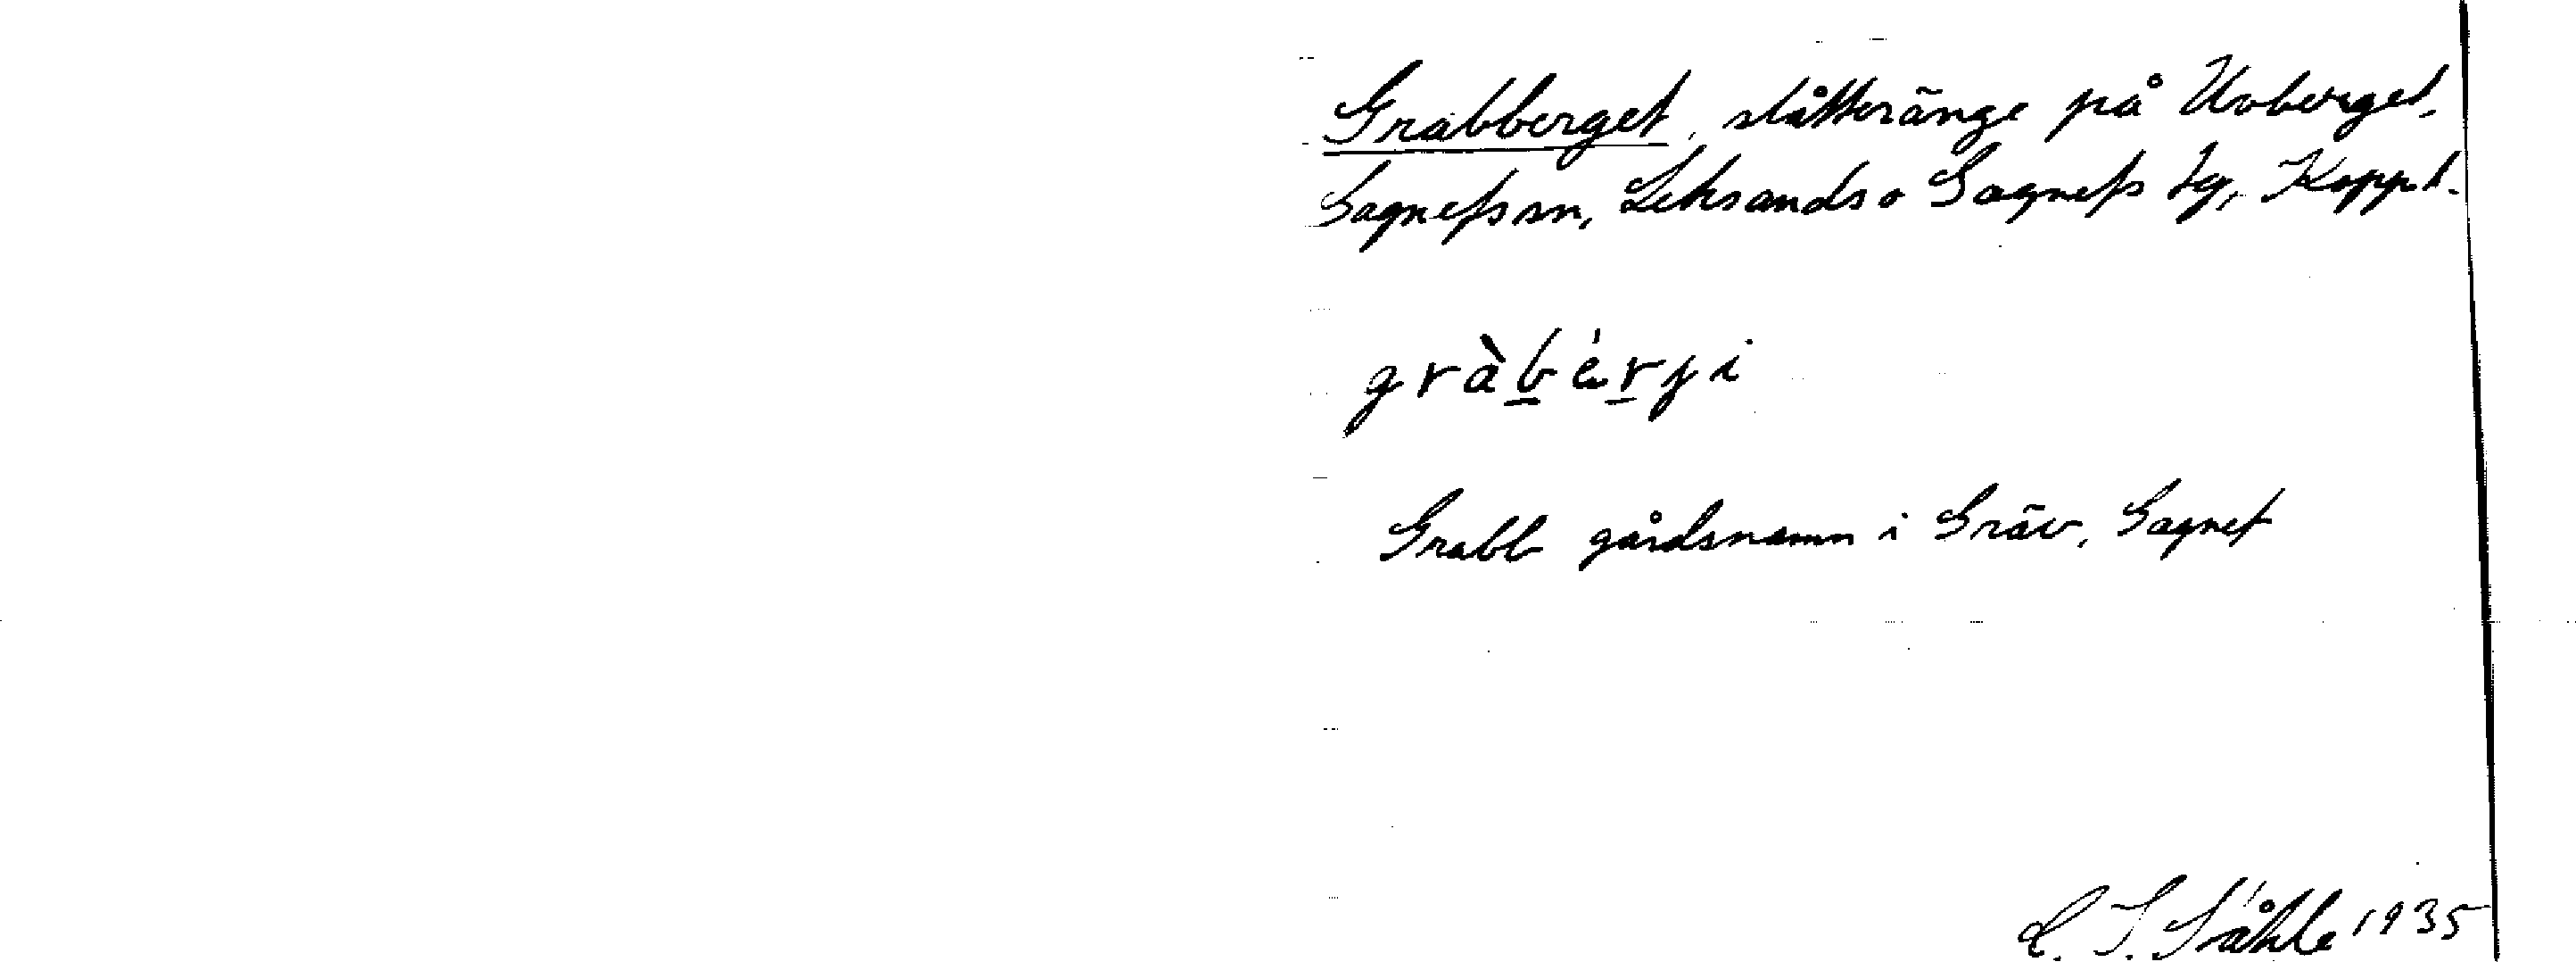 Grabberget, slåtteränge på Uvberget.
Gagnefs sn, Leksands o Gagnefs tg, Koppb.
gràbérji
Grabb gårdsnamn i Gräv, Gagnef
1935